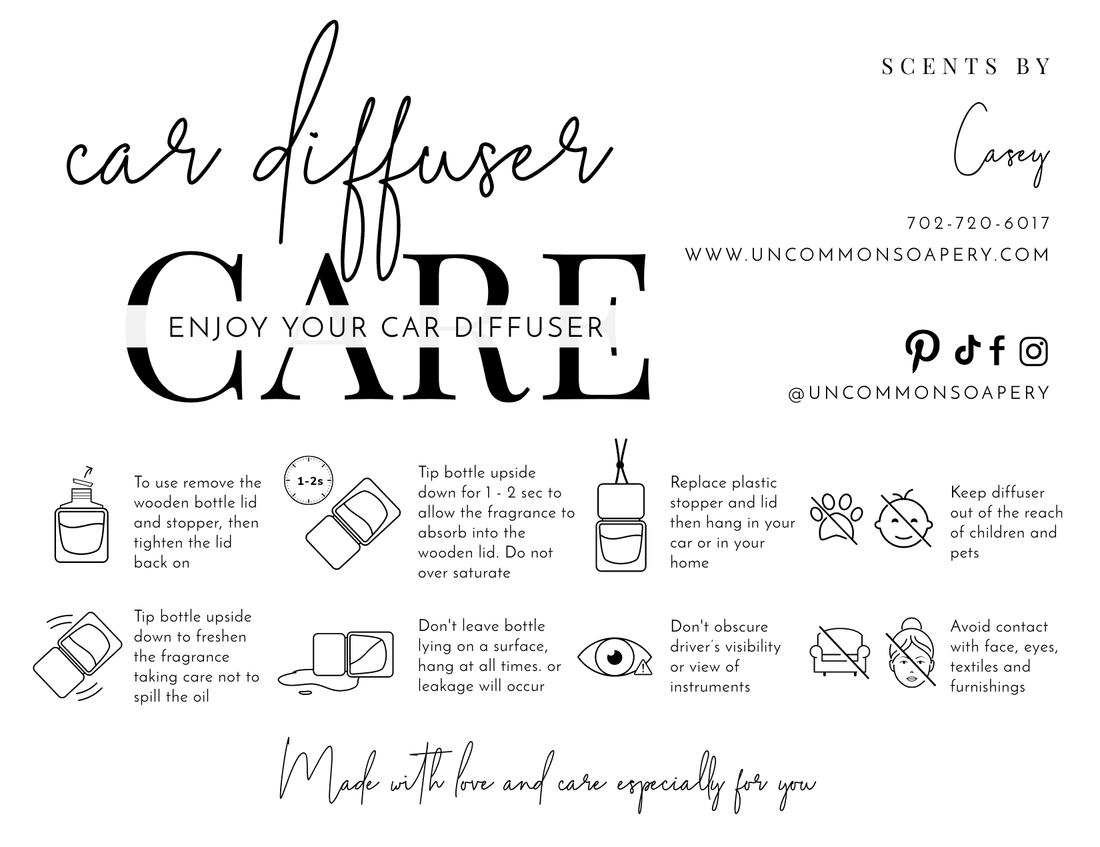 car diffuser
CARE
ENJOY YOUR CAR DIFFUSER
SCENTS BY
Casey
702-720-6017
WWW.UNCOMMONSOAPERY.COM
@UNCOMMONSOAPERY
To use remove the
wooden bottle lid
and stopper, then
tighten the lid
back on
1-2s
Tip bottle upside
down for 1 - 2 sec to
allow the fragrance to
absorb into the
wooden lid. Do not
over saturate
Replace plastic
stopper and lid
then hang in your
car or in your
home
Keep diffuser
out of the reach
of children and
pets
Tip bottle upside
down to freshen
the fragrance
taking care not to
spill the oil
Don't leave bottle
lying on a surface,
hang at all times. or
leakage will occur
Don't obscure
driver's visibility
or view of
instruments
Avoid contact
with face, eyes,
textiles and
furnishings
Made with love and care especially for you